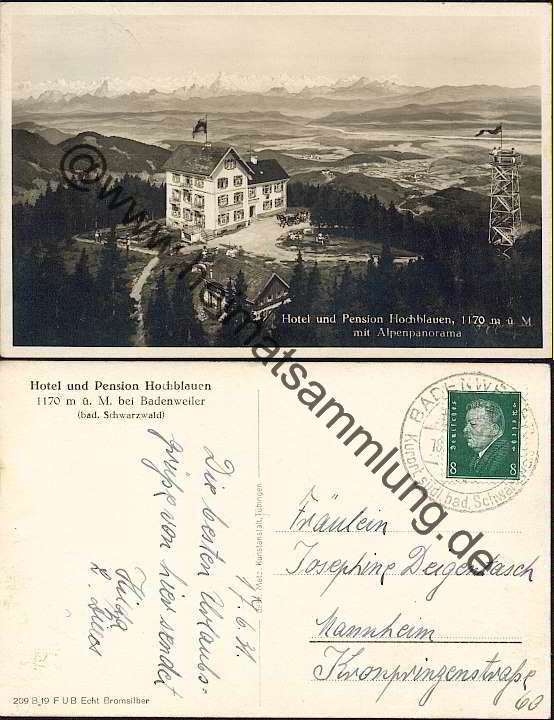 Hotel und Pension Hochblauen, 1170 m ü. M
mit Alpenpanorama
© www.heimatsammlung.de
Hotel und Pension Hochblauen
1170 m ü. M. bei Badenweiler
(bad. Schwarzwald)
Die besten Urlaubs-
grüße von hier sendet
Hilda
17.6.31.
Gebr. Metz, Kunstanstalt, Tübingen
BADENWEILER
Kurort südl. bad. Schwarzwald
Deutsches Reich
8 8
Fräulein
Josephine Deigentasch
Mannheim
Kronprinzenstraße
60
209 B 19 F U B Echt Bromsilber